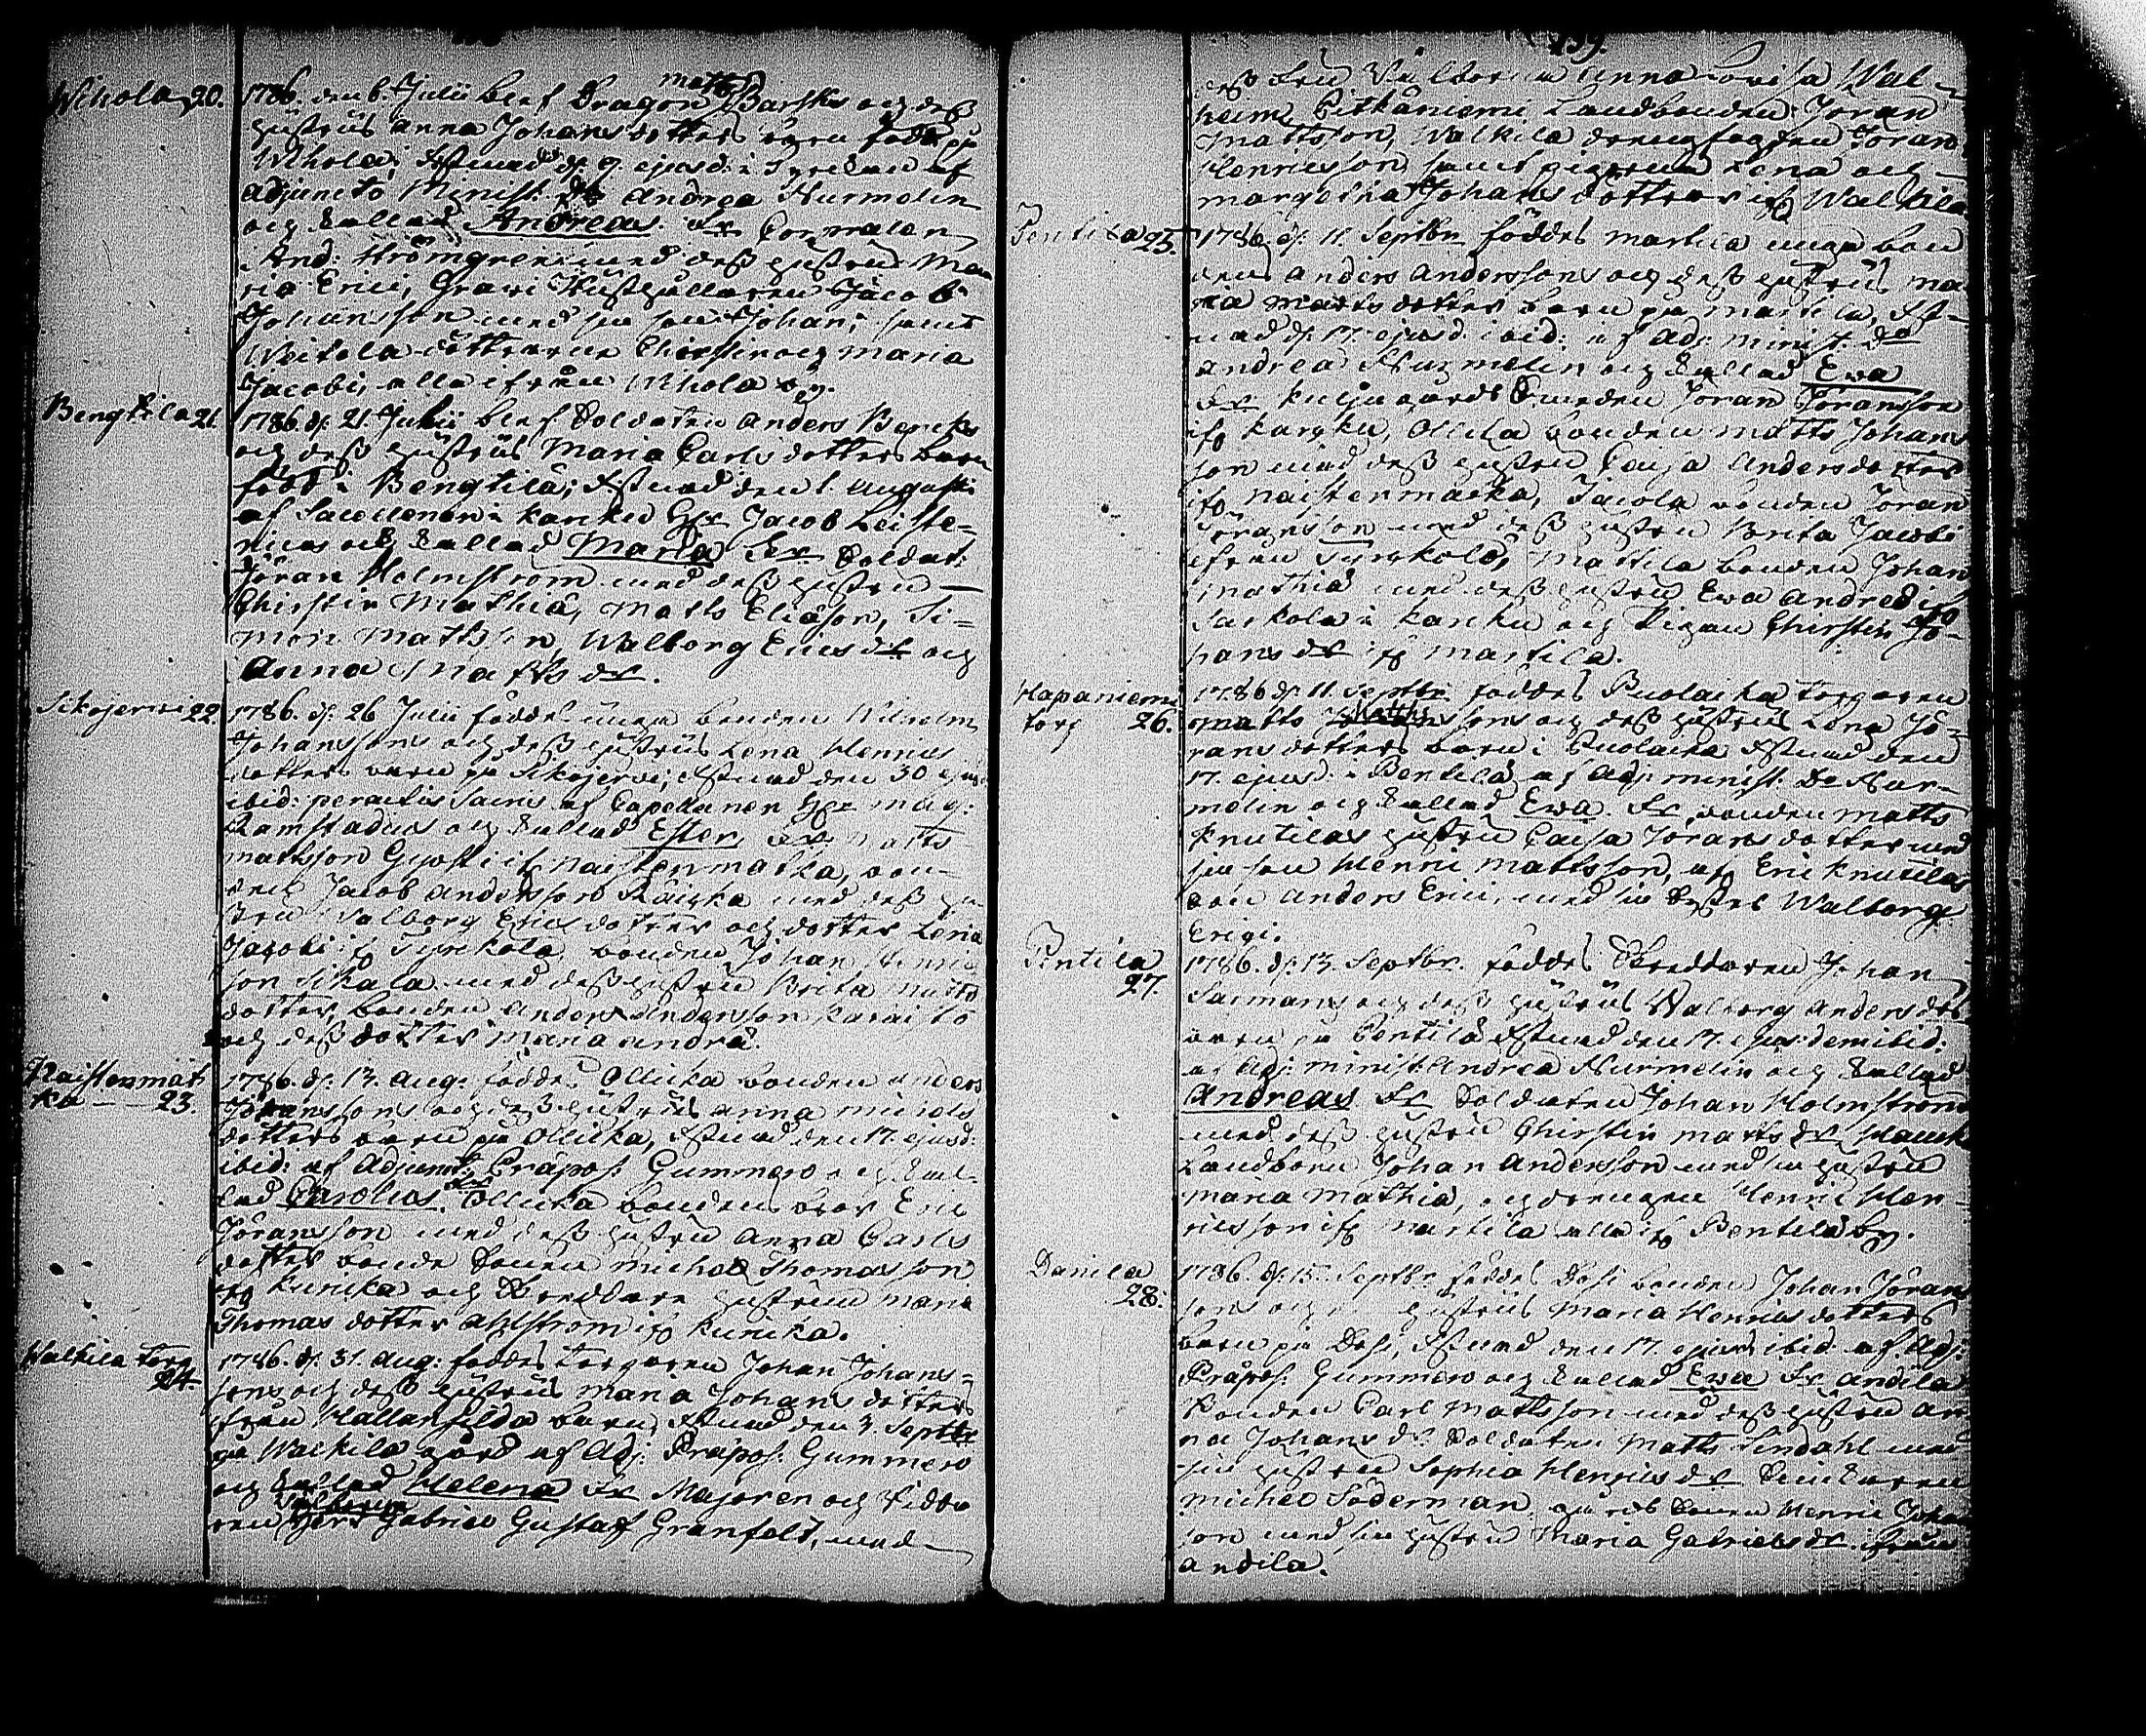 Wihola 20.
1786. den 6. Julii blef Dragon Matts Barsks och dess
hustrus Anna Johans dotters barn född på
Wihola, Christnadt d. 9. ejusd. i Kyrckan af
adjuncto Minist. Do Andrea Nurmelin
och kallad Andreas. Fr. Corporalen
And: Strömgren med dess hustru Ma
ria Erici, Gravi Husthållaren Jacob
Johansson med sin son Johan, samt
Weitola döttrarne Chirstin och Maria
Jacobi, alla ifrån Wihola by.
Bengtila 21.
1786. d. 21. Julii blef Soldaten Anders Bercks
och dess hustrus Maria Carls dotters barn
född i Bengtilä; Christnad den 1. Augusti
af Sacellanen i Kanku Her Jacob Leiste-
nius och kallad Maria Fr. Soldat.
Jöran Holmström med dess hustru
Chirstin Mathiæ, Matts Eliäson, Si-
mon Mattsson, Walborg Ericsdr och
Anna Matts dr.
Sikojerwi 22.
1786. d. 26 Julii föddes unga bonden Wilhelm
Johanssons och dess hustrus Lena Henrics
dotters barn på Sikojerwi; Christnad den 30 ejusd.
ibid: peractis sacris af Capellanen Her Mag:
Ramstadius och kallad Ester Fr. Matts
Mattsson Gyösti if Naistenmatka, bon-
den Jacob Anderssons Räiska med dess hu-
stru Walborg Erics dotter och dotter Lena
Jacobi if Tyrckola, bonden Johan Henric
son Sikala med dess hustru Brita Matts
dotter, bonden Anders Andersson Karaito
och dess dotter Maria Andræ.
Naistenmat
ka 23.
1786. d. 13. Aug. föddes Ollicka bonden Anders
Jöranssons och dess hustrus Anna Michels
dotters barn på Ollicka, Christnad den 17. ejusd.
ibid: af Adjunct. Præpos: Gummero och kal-
lad Carolus. Fr. Ollicka bondens bror Eric
Jöransson med dess hustru Anna Carls
dotter, bonde sonen Michel Thomasson
if Kunicka och Skreddare hustrun Maria
Thomas dotter Ahlström if Kunicka.
Walkila torp
24.
1786. d. 31. Aug: föddes torparen Johan Johans-
sons och dess hustrus Maria Johans dotters
ifrån Hallanfilda barn, Christnad den 3. Septbr
på Walkila gård af Adj: Præpos. Gummero
och kallad Helena Fr. Majoren och Ridda
ren Välborne Herr Gabriel Gustaf Granfelt, med
139.
dess Fru Välborna Anna Lovisa Wal-
heim, Pitkäniemi Landbonden Jöran
Mattsson, Walkila drengfogden Jöran
Henricsson samt pigorna Lena och
Margetha Johans döttrar if Walkila
Pentila 25.
1786. d. 11. Septbr föddes Martila unga bon
dens Anders Anderssons och dess hustrus Ma
ria Matts dotters barn på Martila, Christ-
nad d. 17. ejusd. ibid: af Adj: Minist. Do
Andrea Nurmelin och kallad Ewa
Fr. Kuljugårds Smeden Jöran Jöransson
if Karcku, Ollila bonden Matts Johans
son med dess hustru Caisa Anders dotter
if Naistenmatka, Jacola bonden Jöran
Jöransson med dess hustru Brita Jacobi
ifrån Tyrckola, Mattila bonden Johan
Mathiæ med dess hustru Ewa Andreæ if
Sarkola i Karcku och Pigan Chirstin Jo-
hans dr if Martila.
Hapaniemi
torp 26.
1786 d. 11. Septbr. föddes Puolacka torparen
Matts Matthssons och dess hustrus Lena Jö-
rans dotters barn i Puolacka Christnad den
17. ejusd. i Bentilä af Adj: Minist. Do Nur-
melin och kallad Ewa. Fr. bonden Matts
Knutilas hustru Caisa Jörans dotter med
sin son Henric Mattsson, af Eric Knutilas
son Anders Erici, med sin syster Walborg
Erici.
Pentila
27.
1786. d. 13. Septbr. föddes Skreddaren Johan
Saimans och dess hustrus Walborg Andersdrs
barn på Pentilä Christnad den 17. ejusdem ibid:
af Adj. Minist Andrea Nurmelin och kallad
Andreas Fr. Soldaten Johan Holmström
med dess hustru Chirstin Matts dr
Landbon Johan Andersson med sin hustru
Maria Mathiæ, och drengen Henric Hen-
ricsson if Martila alla if Bentilä by.
Danila
28.
1786. d. 15. Septbr föddes Dosi bonden Johan Jöran
sons och hustrus Maria Henrics dotters
barn på Dosi, Christnad den 17. ejusd ibid. af Adj:
Præpos. Gummero och kallad Ewa Fr. Andila
Bonden Carl Mattsson med dess hustru An
na Johans dr. Soldaten Matts Lindahl med
sin hustru Sophia Henrics dr
Michel Söderman, sonen Henric Johan
son med sin hustru Maria Gabriels dr. ifrån
Andila.